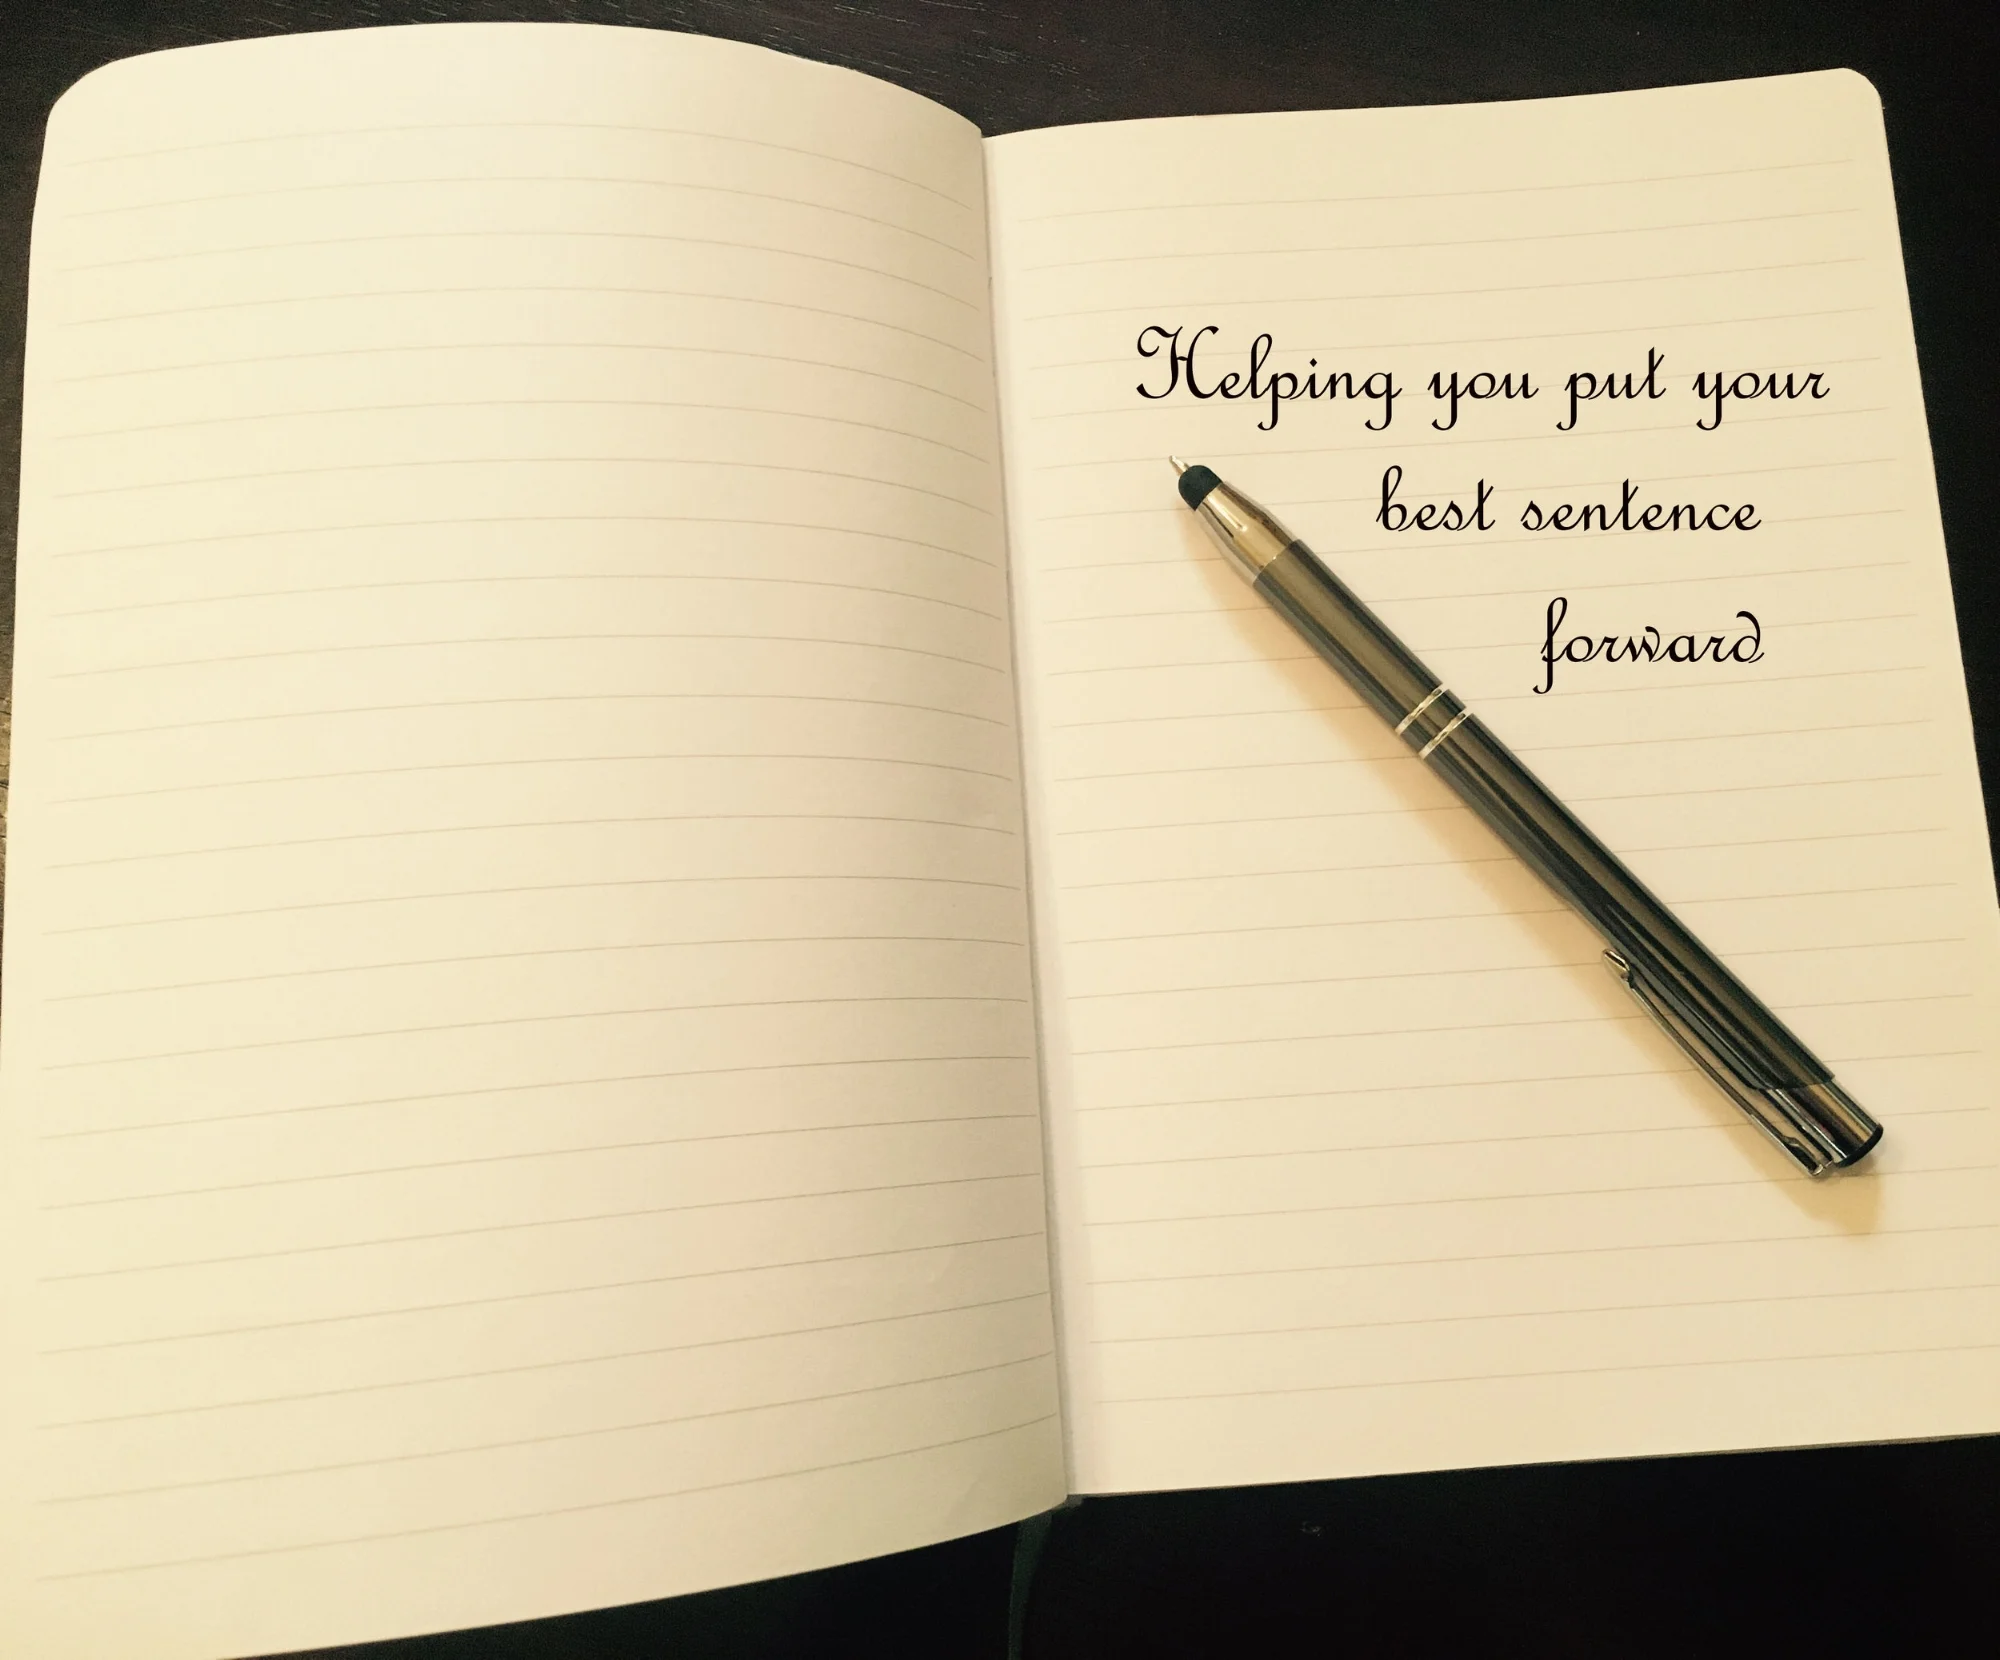 Helping you put your
best sentence
forward